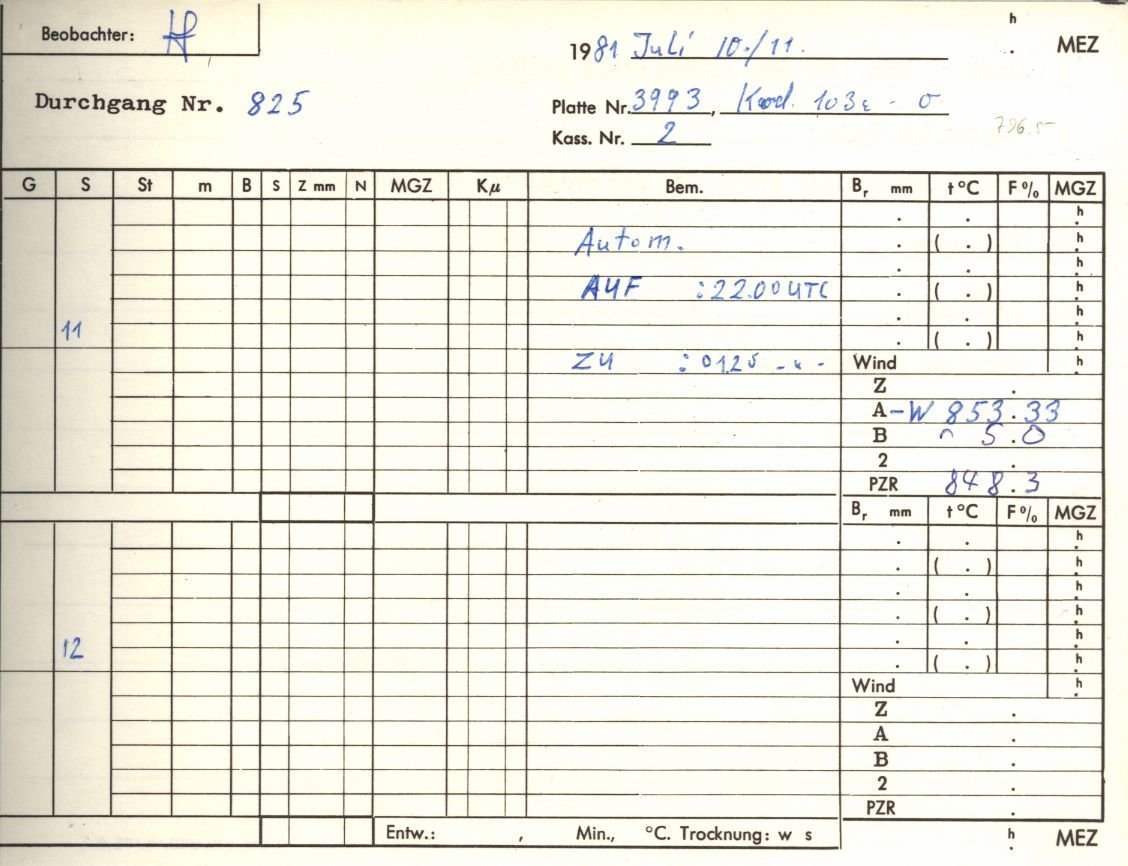 Beobachter: H
h
1981 Juli 10./11. . MEZ
Durchgang Nr. 825
Platte Nr. 3993, Kod. 103a - O
Kass. Nr. 2
796.5
G S St m B S Z mm N MGZ Kμ Bem. Br mm t °C F % MGZ
. . h
Autom. . ( . ) h
. . h
AUF : 22.00 UTC . ( . ) h
. . h
11 . ( . ) h
ZU : 01.25 -"- Wind h
Z .
A -W 853.33
B 5.0
2 .
PZR 848.3
Br mm t °C F % MGZ
. . h
. ( . ) h
. . h
. ( . ) h
12 . . h
. ( . ) h
Wind h
Z .
A .
B .
2 .
PZR .
Entw.: , Min., °C. Trocknung: w s h . MEZ